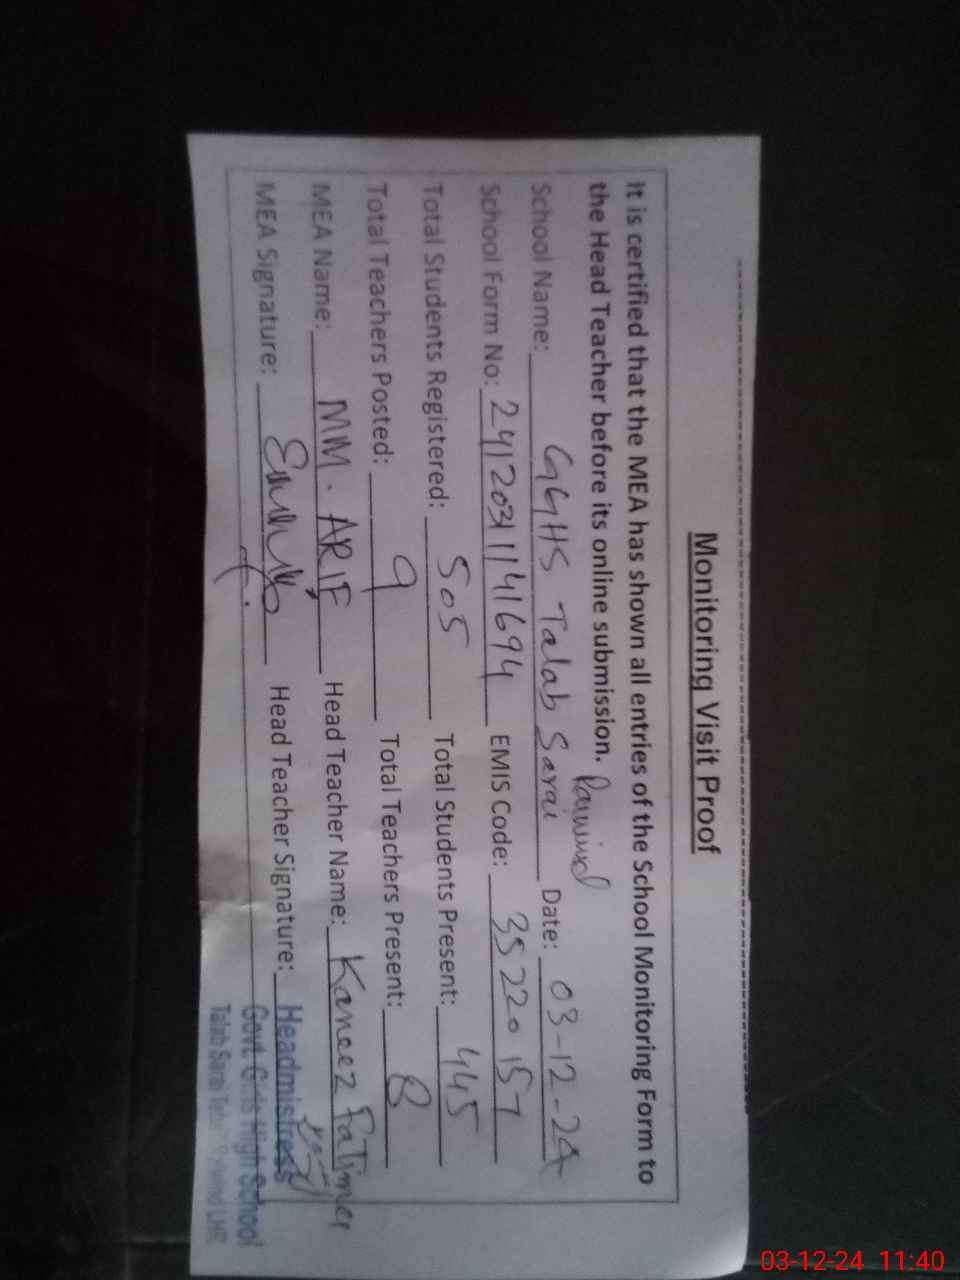 Monitoring Visit Proof
It is certified that the MEA has shown all entries of the School Monitoring Form to
the Head Teacher before its online submission.
School Name: GGHS Talab Sarai Date: 03-12-24
School Form No: 2412031141694 EMIS Code: 35220157
Total Students Registered: 505 Total Students Present: 445
Total Teachers Posted: 9 Total Teachers Present: 8
MEA Name: MM. ARIF Head Teacher Name: Kaneez Fatima
MEA Signature: Head Teacher Signature:
Headmistress
Govt. Girls High School
Talab Sarai
LHR
03-12-24 11:40